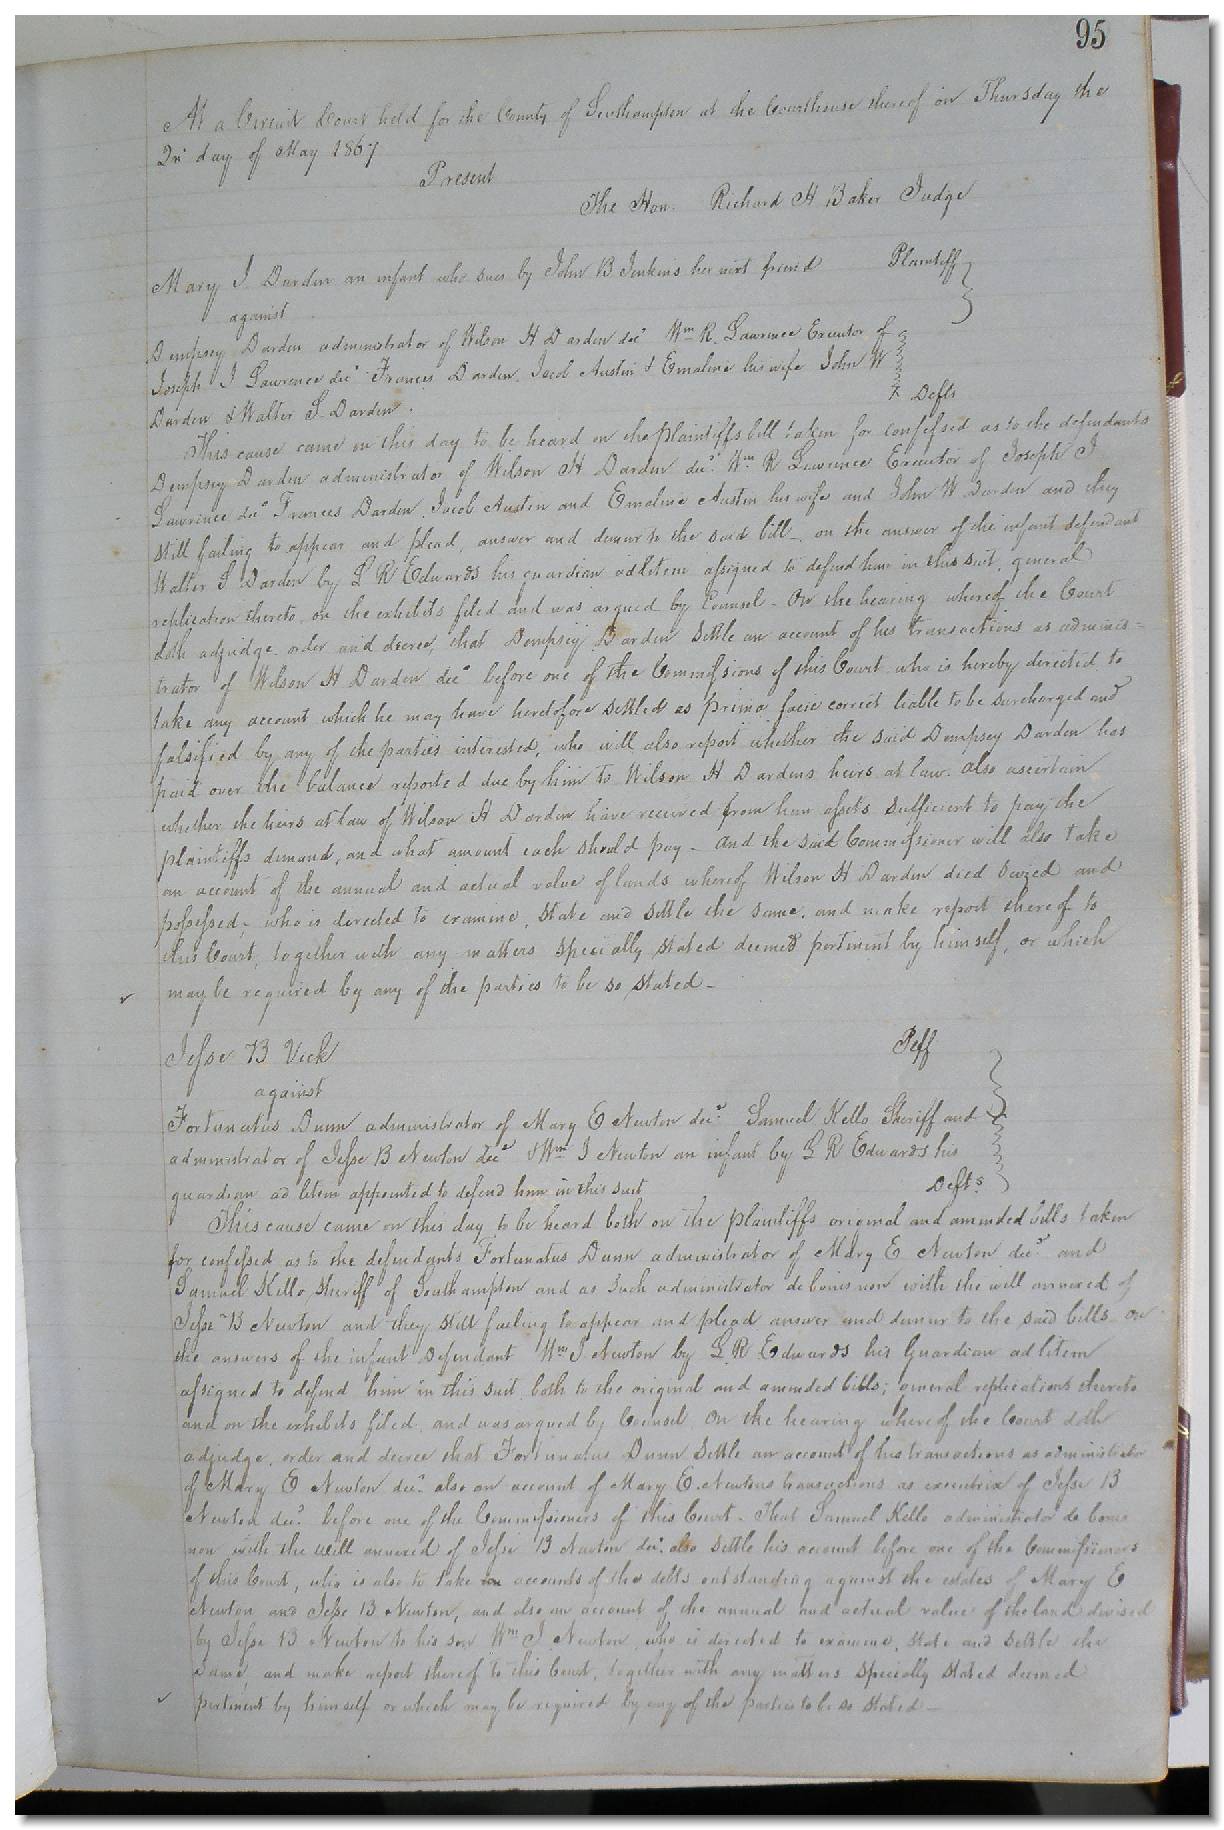 95
At a Circuit Court held for the County of Southampton at the Courthouse thereof on Thursday the
2nd day of May 1867
Present
The Hon. Richard H Baker Judge
Mary J Darden an infant who sues by John B Jenkins her next friend Plaintiff
against
Dempsey Darden administrator of Wilson H Darden decd Wm R. Lawrence Executor of
Joseph J Lawrence decd Frances Darden, Jacob Austin & Emaline his wife John W
Darden & Walter S. Darden. Defts
This cause came on this day to be heard on the plaintiffs bill taken for confessed as to the defendants
Dempsey Darden administrator of Wilson H Darden decd. Wm. R Lawrence Executor of Joseph J
Lawrence decd Frances Darden, Jacob Austin and Emaline Austin his wife and John W Darden and they
still failing to appear and plead, answer and demur to the said bill -, on the answer of the infant defendant
Walter S Darden by L R Edwards his guardian adletem assigned to defend him in this suit, general
replication thereto, on the exhibits filed and was argued by Counsel - On the hearing whereof the Court
doth adjudge order and decree, that Dempsey Darden Settle an account of his transactions as adminis=
trator of Wilson H Darden decd before one of the Commissions of this Court who is hereby directed to
take any account which he may have heretofore settled as prima facie correct liable to be surcharged and
falsified by any of the parties interested, who will also report whether the said Dempsey Darden has
paid over the balance reported due by him to Wilson H Dardens heirs at law. also ascertain
whether the heirs at law of Wilson H Darden have received from him assets sufficient to pay the
plaintiffs demand, and what amount each should pay - and the said Commissioner will also take
an account of the annual and actual value of lands whereof Wilson H Darden died seized and
possessed; who is directed to examine, State and Settle the same, and make report thereof to
this Court, together with any matters specially stated deemed pertinent by himself, or which
may be required by any of the parties to be so stated -
Jesse B Vick Plff
against
Fortunatus Dunn administrator of Mary E Newton decd. Samuel Kello Sheriff and
administrator of Jesse B Newton decd & Wm J Newton an infant by L R Edwards his
guardian ad litem appointed to defend him in this suit Defts
This cause came on this day to be heard both on the plaintiffs original and amended bills taken
for confessed as to the defendants Fortunatus Dunn administrator of Mary E Newton decd and
Samuel Kello Sheriff of Southampton and as such administrator debonis non with the will annexed of
Jesse B Newton and they still failing to appear and plead answer and demur to the said bills - on
the answers of the infant Defendant Wm J Newton by L. R Edwards his Guardian adlitem
assigned to defend him in this suit both to the original and amended bills; general replications thereto
and on the exhibits filed, and was argued by Counsel. On the hearing whereof the Court doth
adjudge, order and decree that Fortunatus Dunn Settle an account of his transactions as administrator
of Mary E Newton decd. also an account of Mary E. Newtons transactions as executrix of Jesse B
Newton decd. before one of the Commissioners of this Court - That Samuel Kello administrator de bonis
non with the will annexed of Jesse B Newton decd. also Settle his account before one of the Commissioners
of this Court, who is also to take accounts of the debts outstanding against the estates of Mary E
Newton and Jesse B. Newton, and also an account of the annual and actual value of the land divised
by Jesse B Newton to his son Wm J. Newton, who is directed to examine, State and Settle the
Same, and make report thereof to this Court, together with any matters specially Stated deemed
pertinent by himself or which may be required by any of the parties to be so stated -